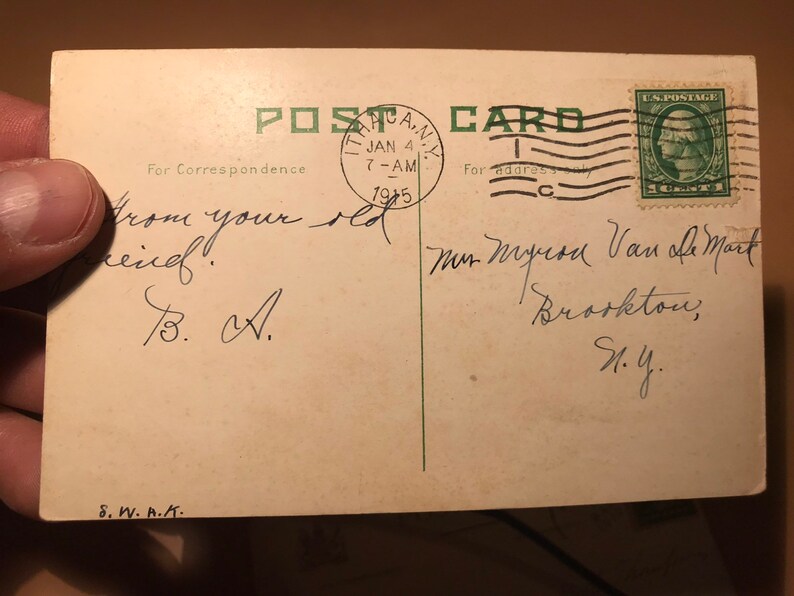 POST CARD
For Correspondence
For address only
ITHACA, N.Y.
JAN 4
7-AM
1915
1
C
U.S. POSTAGE
1 CENT 1
From your old
friend.
B. A.
S. W. A. K.
Mrs Myron Van De Mark
Brookton,
N. Y.